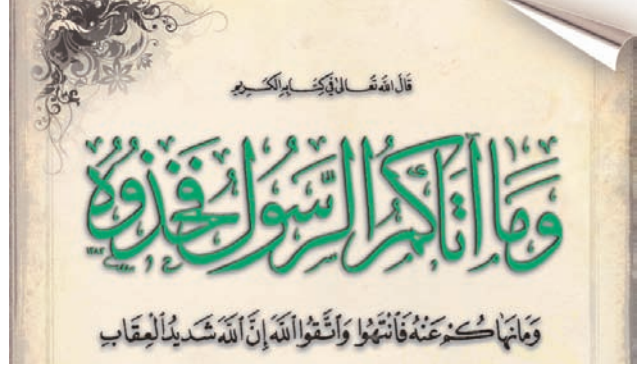 قَالَ اللهُ تَعَالَىٰ فِي كِتَابِهِ الكَرِيمِ
وَمَا اَتَاكُمُ الرَّسُولُ فَخُذُوهُ
وَمَا نَهَاكُمْ عَنْهُ فَانْتَهُوا وَاتَّقُوا اللَّهَ إِنَّ اللَّهَ شَدِيدُ الْعِقَابِ